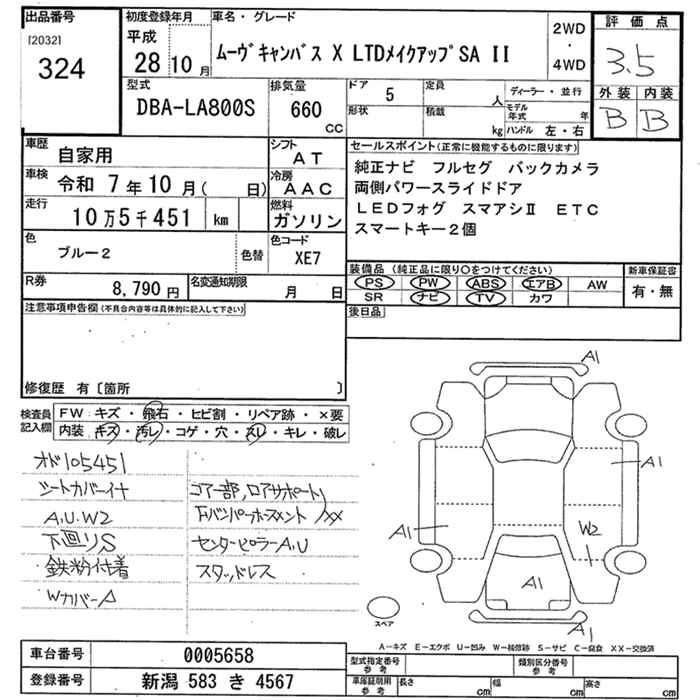 出品番号
[2032]
324
初度登録年月
平成
28 10 月
車名・グレード
ムーヴキャンバス X LTDメイクアップSA II
2WD
・
4WD
評価点
3.5
外装 内装
B B
型式
DBA-LA800S
排気量
660
CC
ドア 5
定員 人
形状
積載 kg
ディーラー・並行
モデル年式 年
ハンドル 左・右
車歴
自家用
シフト
AT
車検 令和 7年10月( 日)
冷房
AAC
走行
10万5千451 km
燃料
ガソリン
色
ブルー2
色替
色コード
XE7
R券
8,790 円
名変通知期限
月 日
セールスポイント(正常に機能するものに限ります)
純正ナビ フルセグ バックカメラ
両側パワースライドドア
LEDフォグ スマアシⅡ ETC
スマートキー2個
装備品(純正品に限り○をつけてください)
PS PW ABS エアB AW
SR ナビ TV カワ
新車保証書
有・無
後日品
注意事項申告欄(不具合内容等は具体的に記入して下さい)
修復歴 有〔箇所 〕
検査員
記入欄
FW キズ・飛石・ヒビ割・リペア跡・×要
内装 キズ・汚レ・コゲ・穴・スレ・キレ・破レ
オド105451
シートカバーイナ
A.U.W2
下廻りS
鉄粉付着
Wカバー△
コアー部,ロアサポート
Fバンパーホースメント XX
センターピラーA,U
スタッドレス
A1
A1
A1
W2
A1
A1
スペア
A-キズ E-エクボ U-凹み W-補修跡 S-サビ C-腐食 XX-交換済
車台番号 0005658
登録番号 新潟 583 き 4567
型式指定番号
参考
類別区分番号
参考
車庫証明用
参考
長さ cm
幅 cm
高さ cm